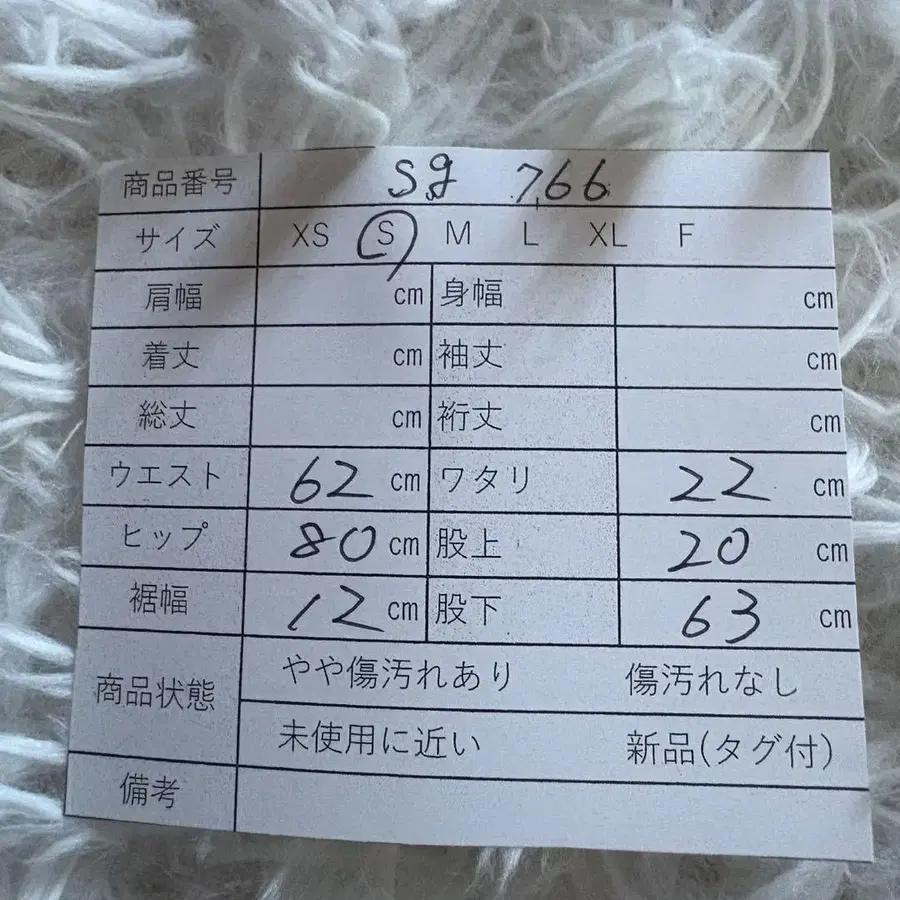 商品番号 sg 766
サイズ XS S M L XL F
肩幅 cm 身幅 cm
着丈 cm 袖丈 cm
総丈 cm 裄丈 cm
ウエスト 62 cm ワタリ 22 cm
ヒップ 80 cm 股上 20 cm
裾幅 12 cm 股下 63 cm
商品状態 やや傷汚れあり 傷汚れなし
未使用に近い 新品(タグ付)
備考